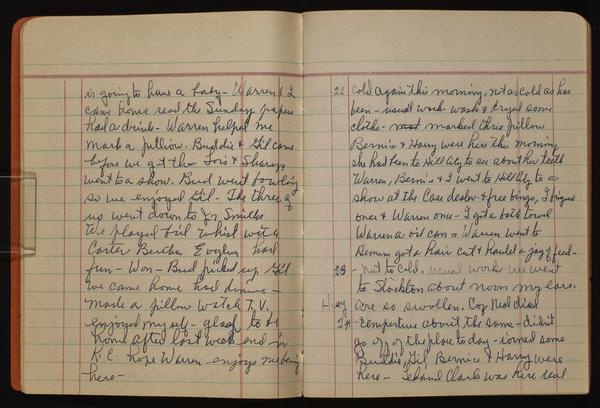 is going to have a baby - Warren & I
came home read the Sunday papers
Had a drink - Warren helped me
mark a pillow. Buddie & Gil came
before we got the Lois & Sharyn
went to a show. Bud went bowling
so we enjoyed Gil - The three of
us went down to Jr. Smiths
We played bid whist with
Carter Bertha Evelyn had
fun - Won - Bud picked up Gil
we came home had dinner -
made a pillow watch T.V.
enjoyed myself - glad to be
home after last week end in
K.C. hope Warren enjoys me being
here -
22 Cold again this morning, not as cold as has
been - usual work wash & dryed some
cloths - marked three pillow
Bernice & Harry were here this morning
she had been to Hill City to see about her teeth
Warren, Bernice & I went to Hill City to a
show at the Case dealer & free bingo, I binged
once & Warren one - I got a bath towel
Warren a oil can - Warren went to
got a hair cut & hauled a jag of feed -
23 - not to cold, usual work we went
to Stockton about noon my ears
are so swollen. Coz Neal died
24 - temperture about the same - didn't
go off of the place to day - ironed some
Buddie, Gil, Bernice & Harry were
here - Leland Clark was here